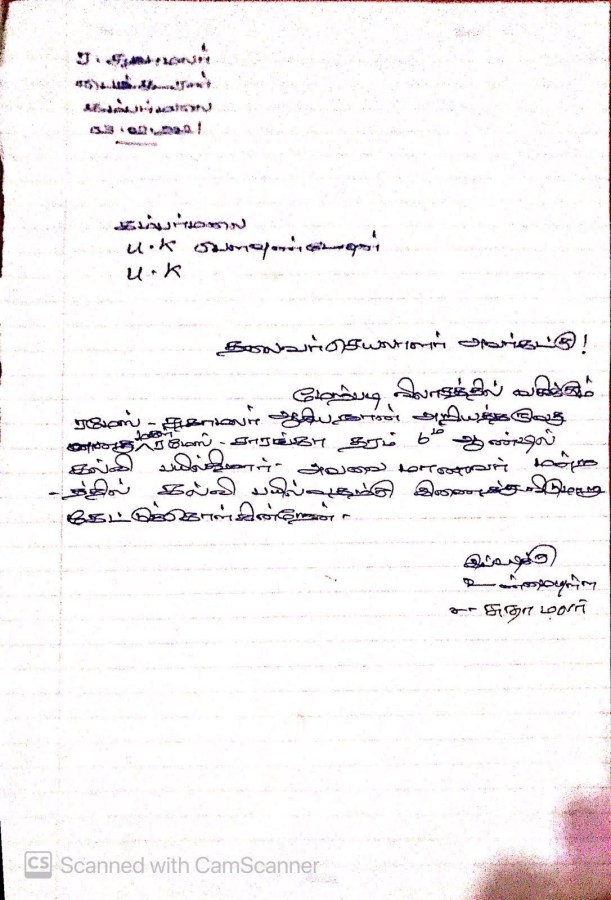 ர. சுதாமலர்
கம்பர்மலை
03.02.2021
கம்பர்மலை
U.K
U.K
தலைவர்/செயலாளர் அவர்கட்கு!
மேற்படி விலாசத்தில் வசிக்கும்
ரமேஸ் - சுதாமலர் ஆகிய நான் அறியத்தருவது
எனது மகள் ரமேஸ் - சாரங்கா தரம் 6ம் ஆண்டில்
கல்வி பயில்கிறார். அவவை மாணவர் மன்ற
-த்தில் கல்வி பயில்வதற்கு இணைத்துவிடுமாறு
கேட்டுக்கொள்கின்றேன்.
இப்படிக்கு
உண்மையுள்ள
சுதாமலர்
CS Scanned with CamScanner